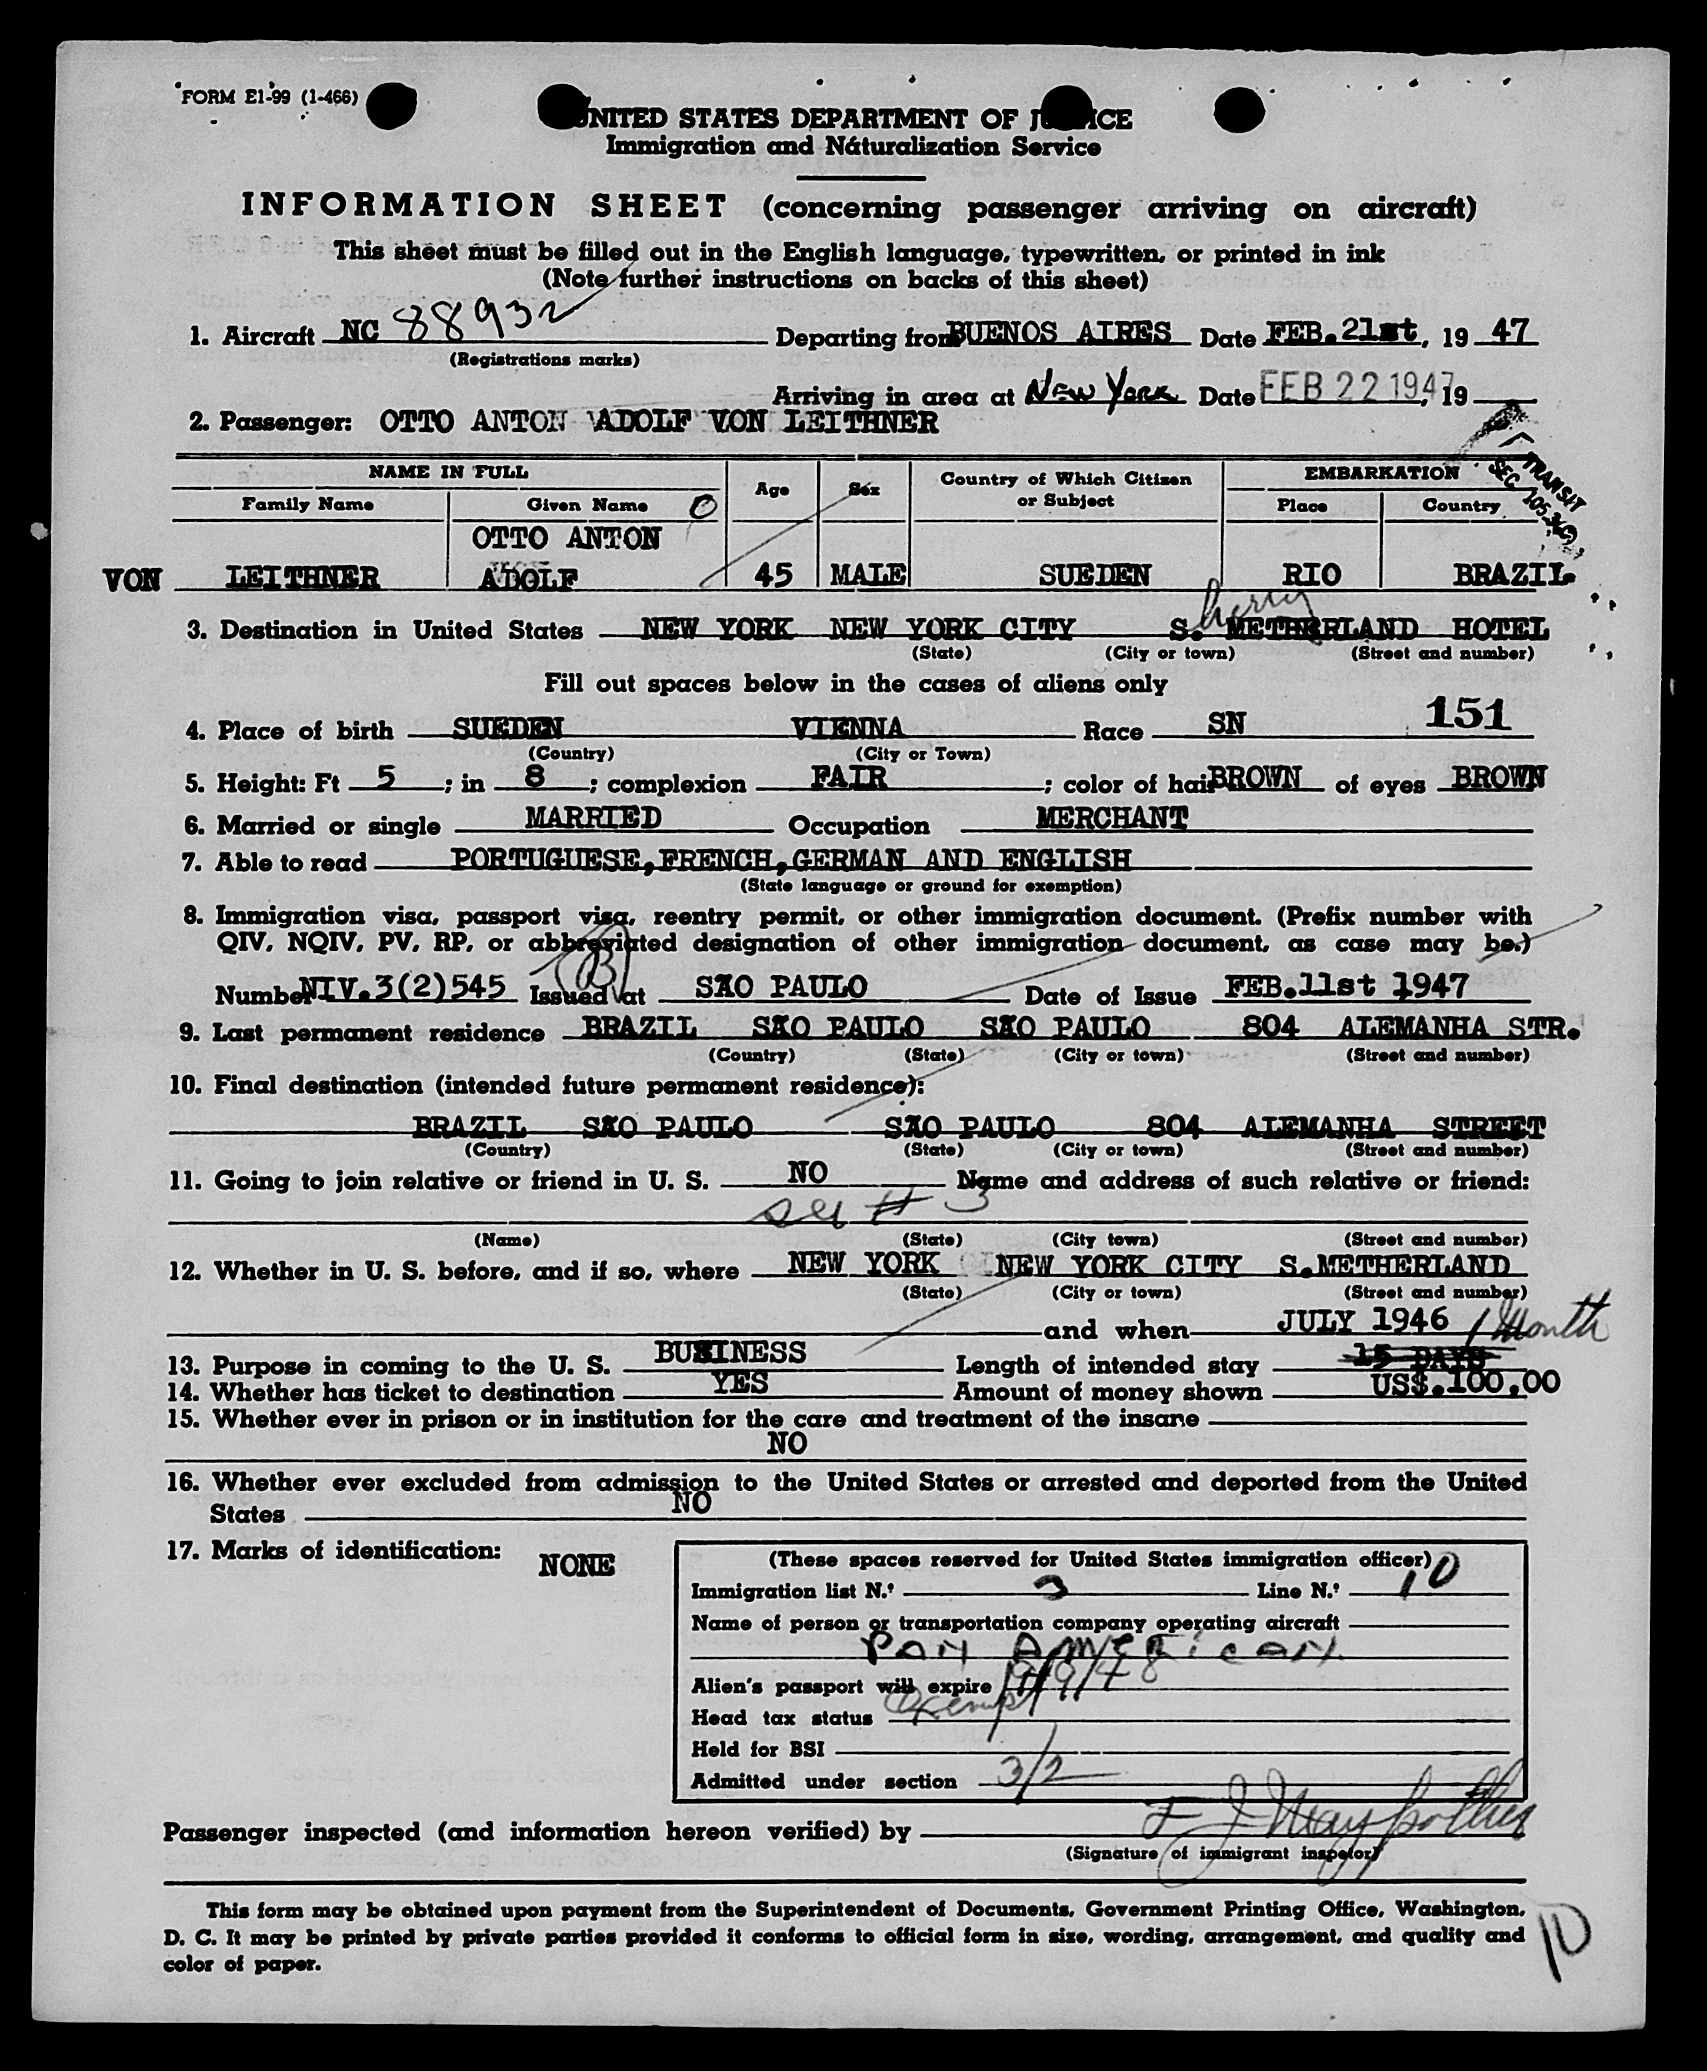 FORM E1-99 (1-466)
UNITED STATES DEPARTMENT OF JUSTICE
Immigration and Naturalization Service
INFORMATION SHEET (concerning passenger arriving on aircraft)
This sheet must be filled out in the English language, typewritten, or printed in ink
(Note further instructions on backs of this sheet)
1. Aircraft NC 88932 Departing from BUENOS AIRES Date FEB.21st, 19 47
(Registrations marks)
Arriving in area at New York Date FEB 22 1947, 19
2. Passenger: OTTO ANTON ADOLF VON LEITHNER
TRANSIT
SEC 105.3(c)
NAME IN FULL Age Sex Country of Which Citizen or Subject EMBARKATION
Family Name Given Name O Place Country
OTTO ANTON
VON LEITHNER ADOLF 45 MALE SUEDEN RIO BRAZIL.
herry
3. Destination in United States NEW YORK NEW YORK CITY S. METHERLAND HOTEL
(State) (City or town) (Street and number)
Fill out spaces below in the cases of aliens only
151
4. Place of birth SUEDEN VIENNA Race SN
(Country) (City or Town)
5. Height: Ft 5 ; in 8 ; complexion FAIR ; color of hair BROWN of eyes BROWN
6. Married or single MARRIED Occupation MERCHANT
7. Able to read PORTUGUESE,FRENCH,GERMAN AND ENGLISH
(State language or ground for exemption)
8. Immigration visa, passport visa, reentry permit, or other immigration document. (Prefix number with
QIV, NQIV, PV, RP, or abbreviated designation of other immigration document, as case may be.)
(B)
Number NIV.3(2)545 Issued at SÃO PAULO Date of Issue FEB.11st 1947
9. Last permanent residence BRAZIL SÃO PAULO SÃO PAULO 804 ALEMANHA STR.
(Country) (State) (City or town) (Street and number)
10. Final destination (intended future permanent residence):
BRAZIL SÃO PAULO SÃO PAULO 804 ALEMANHA STREET
(Country) (State) (City or town) (Street and number)
11. Going to join relative or friend in U. S. NO Name and address of such relative or friend:
see # 3
(Name) (State) (City town) (Street and number)
12. Whether in U. S. before, and if so, where NEW YORK NEW YORK CITY S.METHERLAND
(State) (City or town) (Street and number)
and when JULY 1946 1 Month
13. Purpose in coming to the U. S. BUSINESS Length of intended stay 15 DAYS
14. Whether has ticket to destination YES Amount of money shown US$.100,00
15. Whether ever in prison or in institution for the care and treatment of the insane
NO
16. Whether ever excluded from admission to the United States or arrested and deported from the United
States NO
17. Marks of identification: NONE
(These spaces reserved for United States immigration officer)
Immigration list N.º 3 Line N.º 10
Name of person or transportation company operating aircraft
PAN AMERICAN
Alien's passport will expire 9/9/48
Head tax status Exempt
Held for BSI
Admitted under section 3/2
Passenger inspected (and information hereon verified) by
(Signature of immigrant inspetor)
This form may be obtained upon payment from the Superintendent of Documents, Government Printing Office, Washington,
D. C. It may be printed by private parties provided it conforms to official form in size, wording, arrangement, and quality and
color of paper.
10